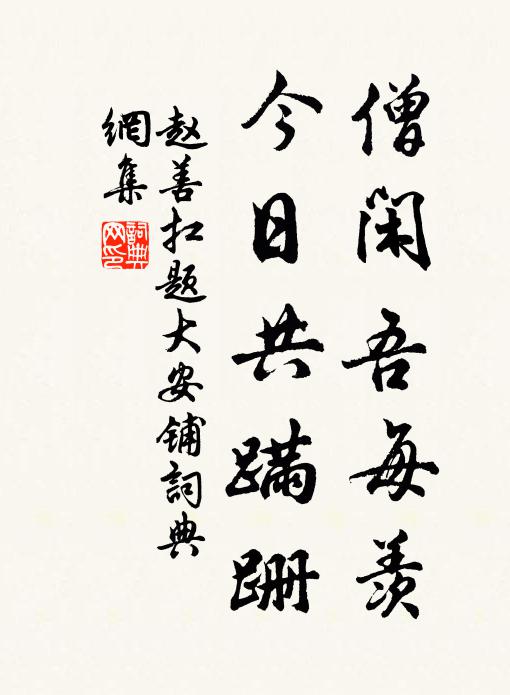 僧閑吾每羨
今日共蹣跚
赵善扛题大安铺詞典
網集
詞典
网印